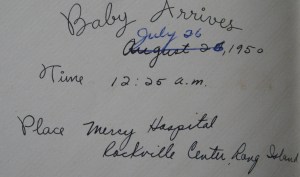 Baby Arrives
July 26
August 26, 1950
Time 12:25 a.m.
Place Mercy Hospital
Rockville Center, Long Island